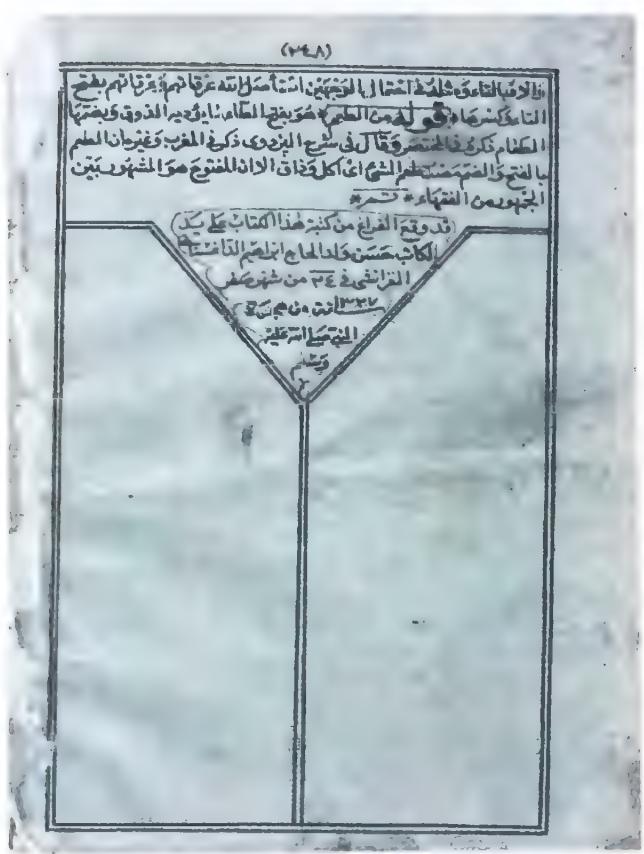 (٣٤٨)
والا فبالتاء ومثله في احتمال الوجهين استأصل الله عرقاتهم وعرقاتهم بفتح
التاء وكسرها * قوله من الطعم * هو بفتح الطاء ما يؤديه الذوق وبضمها
الطعام ذكره في المختصر وقال في شرح البزدوي ذكر في المغرب وغيره ان الطعم
بالفتح والضم مصدر طعم الشئ اى اكل وذاق الا ان المفتوح هو المشهور بين
الجمهور من الفقهاء * تم *
قد وقع الفراغ من كتبة هذا الكتاب على يد
الكاتب حسن ولد الحاج ابراهيم الداغستاني
في ٢٤ من شهر صفر
١٣٢٧ من هجرة
النبي صلى الله عليه
وسلم